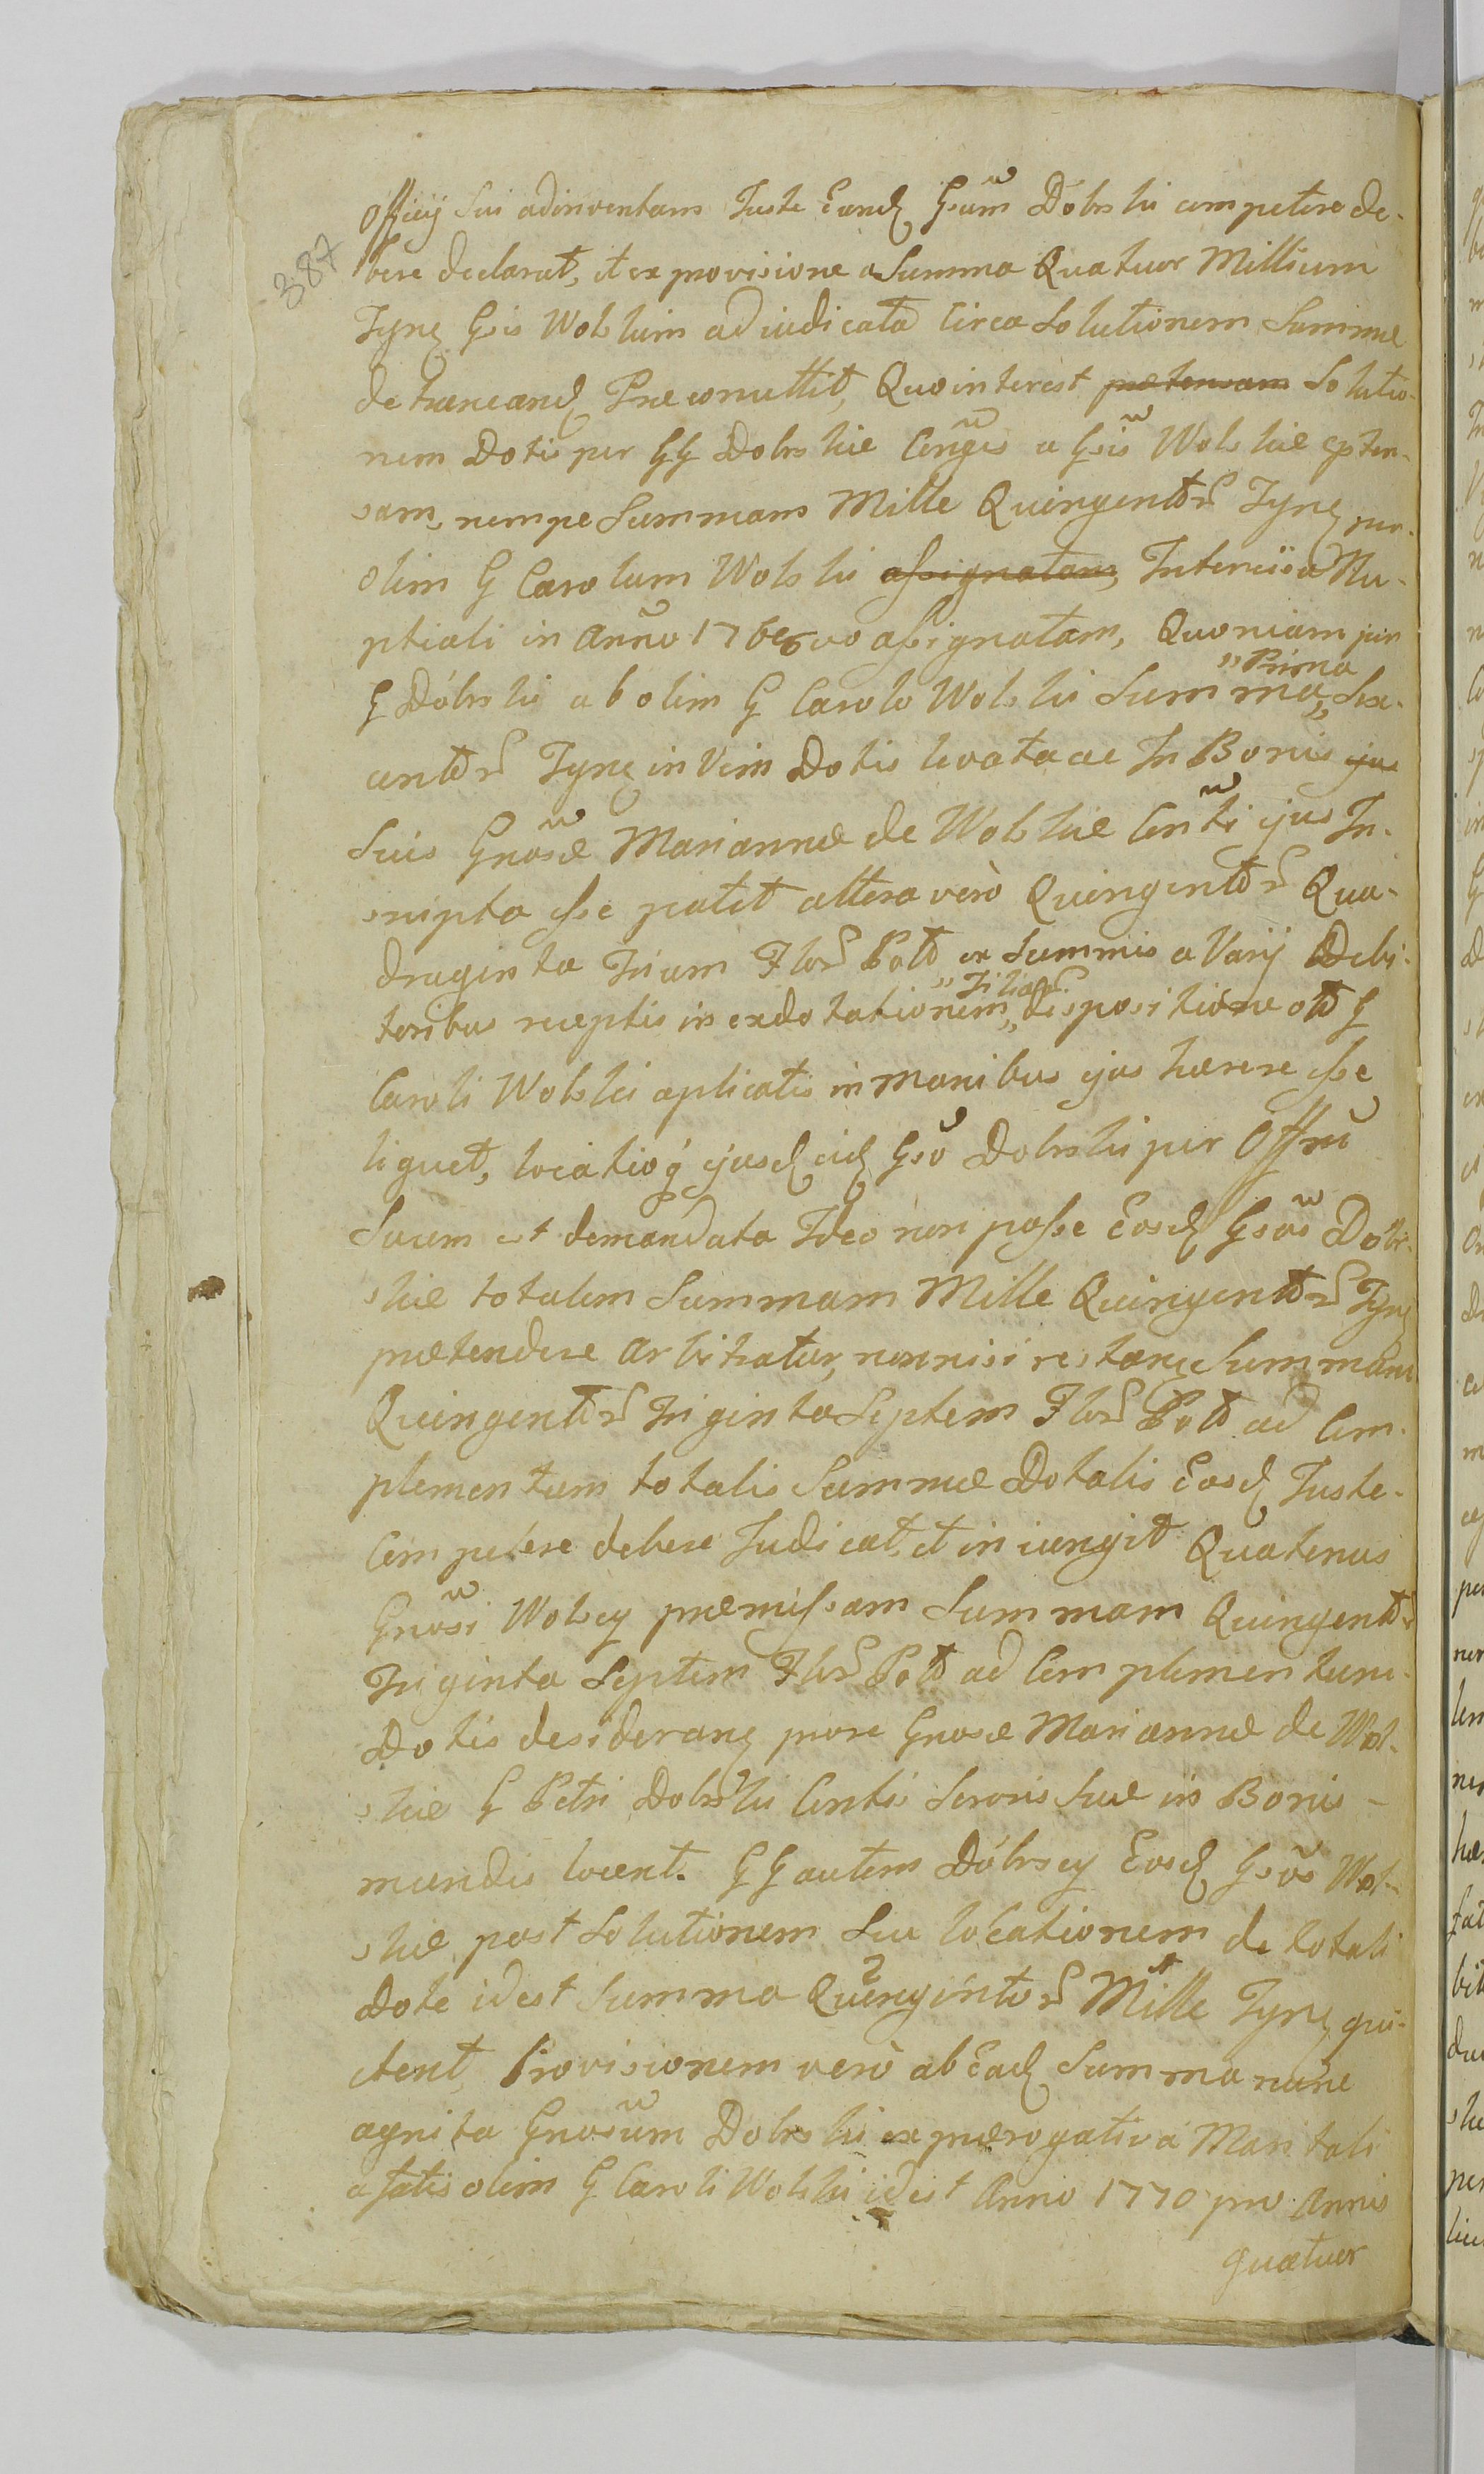 387
Officij sui adinventam Juste Eund Gsum Dobrski competere de-
bere declarat, et ex provisione a Summa Quatuor Millium
Tyne Gsis Wolskim adiudicata circa Solutionem Summæ
detruncand Præcomittit, Quo interest prætensam Solutio-
nem Dotis per GG Dobrskie Conges a Gsis Wolskie expten-
sam, nempe Summam Mille Quingentor Tyne per
olim G Carolum Wolski assignatam, Intercisa Nu-
ptiali in Anno assignatam, Quoniam
G Dobrski ab olim G Carolo Wolski Summa, Sex-
"Prima
centor Tyne in Vim Dotis levata ac In Bonis ejus
Suis Gnosæ Mariannæ de Wolskie Conti ejus In-
scripta esse patet altera verò Quingentor Qua-
draginta Trium Flor Polo ex Summis a Varij Debi-
toribus receptis in exdotationem, dispositione olo G
"Filiar
Caroli Wolski aplicatis in manibus ejus hærere esse
liquet, locatioq ejusd eid Gso Dobrski per Offm
Suum est demandata Ideo non posse Eosd Gsos Dobr-
skie totalem Summam Mille Quingentor Tyne
prætendere arbitratur, nonnisi restane Summam
Quingentor Triginta Septem Flor Polo ad Com-
plementum totalis Summæ Dotalis Eosd Juste-
Competere debere Judicat, et iniungit Quatenus
Gnosi Wolscy præmissam Summam Quingentor
Triginta Septem Flor Polo ad Complementum-
Dotis desiderane prore Gnosæ Mariannæ de Wol-
skie G Petri Dobrski Contis Sororis Suæ in Bonis-
mundis locent. GG autem Dóbrscy Eosd Gsos Wol-
skie, post Solutionem Seu locationem de totali
Dote idest Summa Quingintor Mille Tyne qui-
etent, Provisionem verò ab Ead Summa nunc
agnita Gnosum Dobrski ex prærogativa Maritali
a fatis olim G Caroli Wolski idest Anno 1770 pro Annis
quatuor